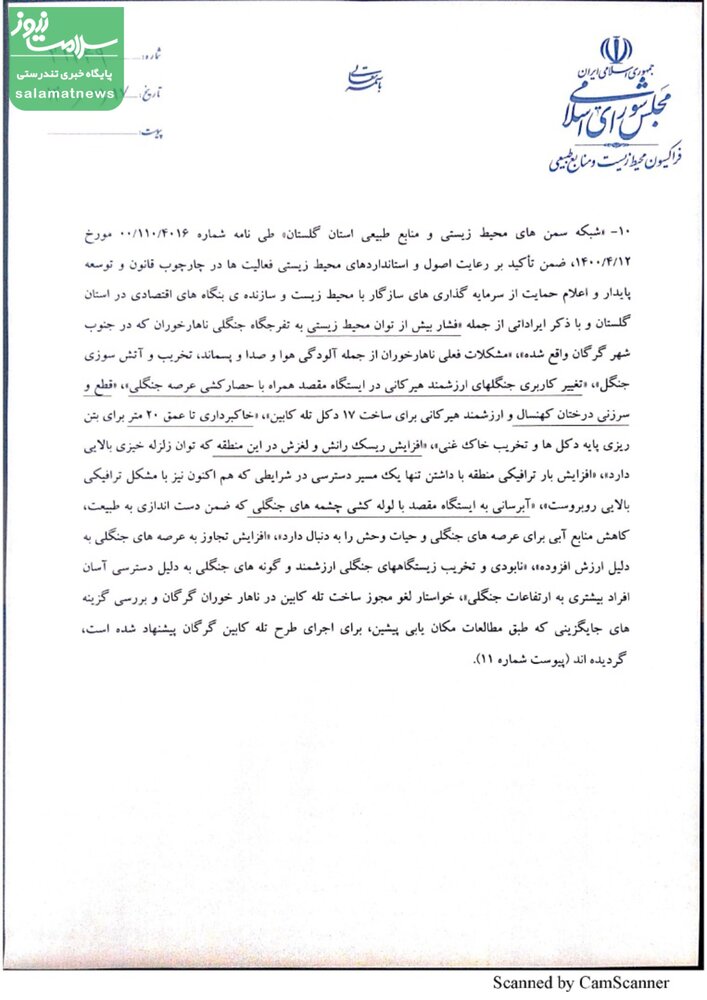 سلامت نیوز
پایگاه خبری تندرستی
salamatnews
شماره:
تاریخ:
پیوست:
باسمه تعالی
جمهوری اسلامی ایران
مجلس شورای اسلامی
فراکسیون محیط زیست و منابع طبیعی
۱۰- «شبکه سمن های محیط زیستی و منابع طبیعی استان گلستان» طی نامه شماره ۰۰/۱۱۰/۴۰۱۶ مورخ
۱۴۰۰/۴/۱۲، ضمن تأکید بر رعایت اصول و استانداردهای محیط زیستی فعالیت ها در چارچوب قانون و توسعه
پایدار و اعلام حمایت از سرمایه گذاری های سازگار با محیط زیست و سازنده ی بنگاه های اقتصادی در استان
گلستان و با ذکر ایراداتی از جمله «فشار بیش از توان محیط زیستی به تفرجگاه جنگلی ناهارخوران که در جنوب
شهر گرگان واقع شده»، «مشکلات فعلی ناهارخوران از جمله آلودگی هوا و صدا و پسماند، تخریب و آتش سوزی
جنگل»، «تغییر کاربری جنگلهای ارزشمند هیرکانی در ایستگاه مقصد همراه با حصارکشی عرصه جنگلی»، «قطع و
سرزنی درختان کهنسال و ارزشمند هیرکانی برای ساخت ۱۷ دکل تله کابین»، «خاکبرداری تا عمق ۲۰ متر برای بتن
ریزی پایه دکل ها و تخریب خاک غنی»، «افزایش ریسک رانش و لغزش در این منطقه که توان زلزله خیزی بالایی
دارد»، «افزایش بار ترافیکی منطقه با داشتن تنها یک مسیر دسترسی در شرایطی که هم اکنون نیز با مشکل ترافیکی
بالایی روبروست»، «آبرسانی به ایستگاه مقصد با لوله کشی چشمه های جنگلی که ضمن دست اندازی به طبیعت،
کاهش منابع آبی برای عرصه های جنگلی و حیات وحش را به دنبال دارد»، «افزایش تجاوز به عرصه های جنگلی به
دلیل ارزش افزوده»، «نابودی و تخریب زیستگاههای جنگلی ارزشمند و گونه های جنگلی به دلیل دسترسی آسان
افراد بیشتری به ارتفاعات جنگلی»، خواستار لغو مجوز ساخت تله کابین در ناهار خوران گرگان و بررسی گزینه
های جایگزینی که طبق مطالعات مکان یابی پیشین، برای اجرای طرح تله کابین گرگان پیشنهاد شده است،
گردیده اند (پیوست شماره ۱۱).
Scanned by CamScanner